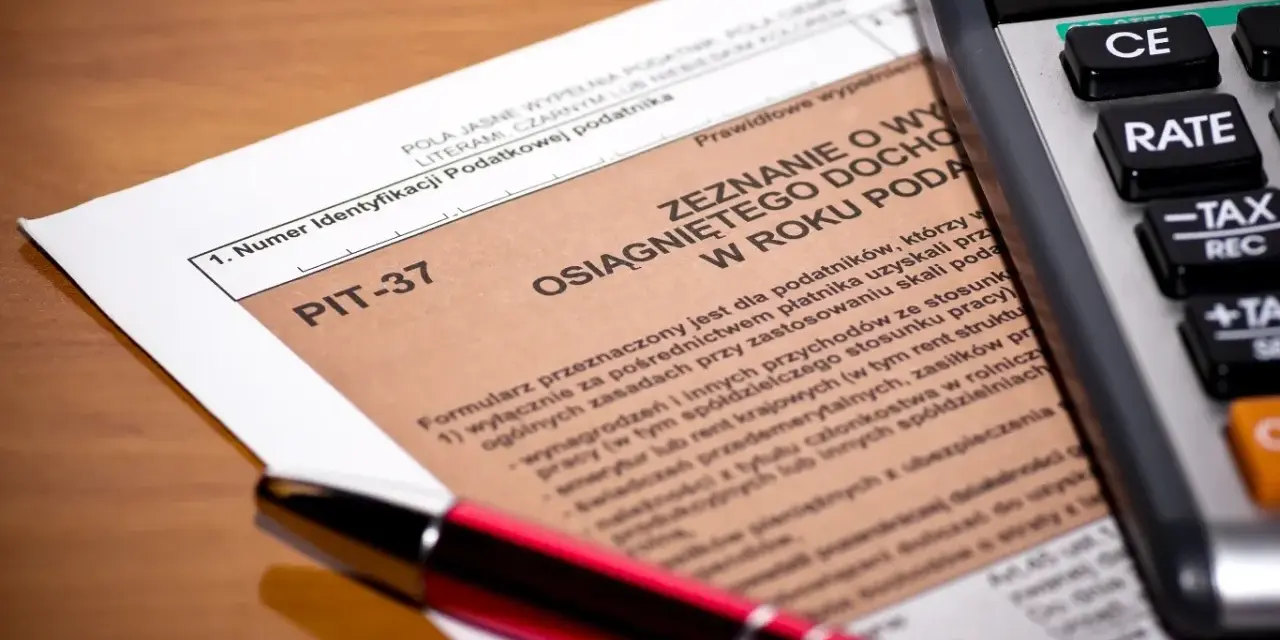 POLA JASNE WYPEŁNIA PODATNIK. POLA CIEMNE
LITERAMI, CZARNYM LUB NIEBIESKIM KOLOREM
1. Numer Identyfikacji Podatkowej podatnika
Prawidłowe wypełnieni
PIT-37
ZEZNANIE O WY
OSIĄGNIĘTEGO DOCHO
W ROKU PODA
Formularz przeznaczony jest dla podatników, którzy w
1) wyłącznie za pośrednictwem płatnika uzyskali prz
ogólnych zasadach przy zastosowaniu skali poda
- wynagrodzeń i innych przychodów ze stosunk
pracy (w tym spółdzielczego stosunku pracy)
- emerytur lub rent krajowych (w tym rent struktu
- świadczeń przedemerytalnych, zasiłków prz
- należności z tytułu członkostwa w rolniczy
produkcyjnych lub innych spółdzielniach
pieniężnych z ubezpieczenia
CE
RATE
−TAX
REC
+TA